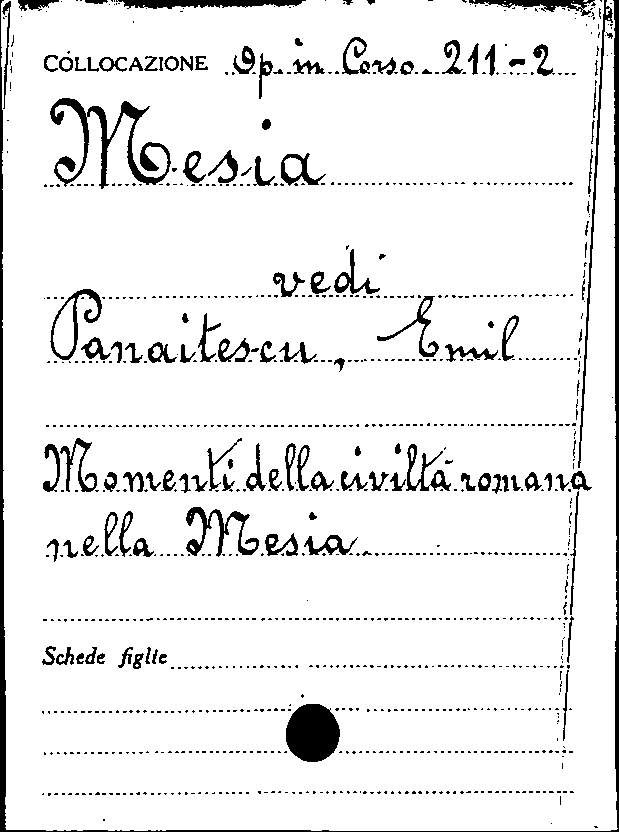 COLLOCAZIONE Op. in Corso. 211-2
Mesia
vedi
Panaitescu, Emil
Momenti della civiltà romana
nella Mesia.
Schede figlie